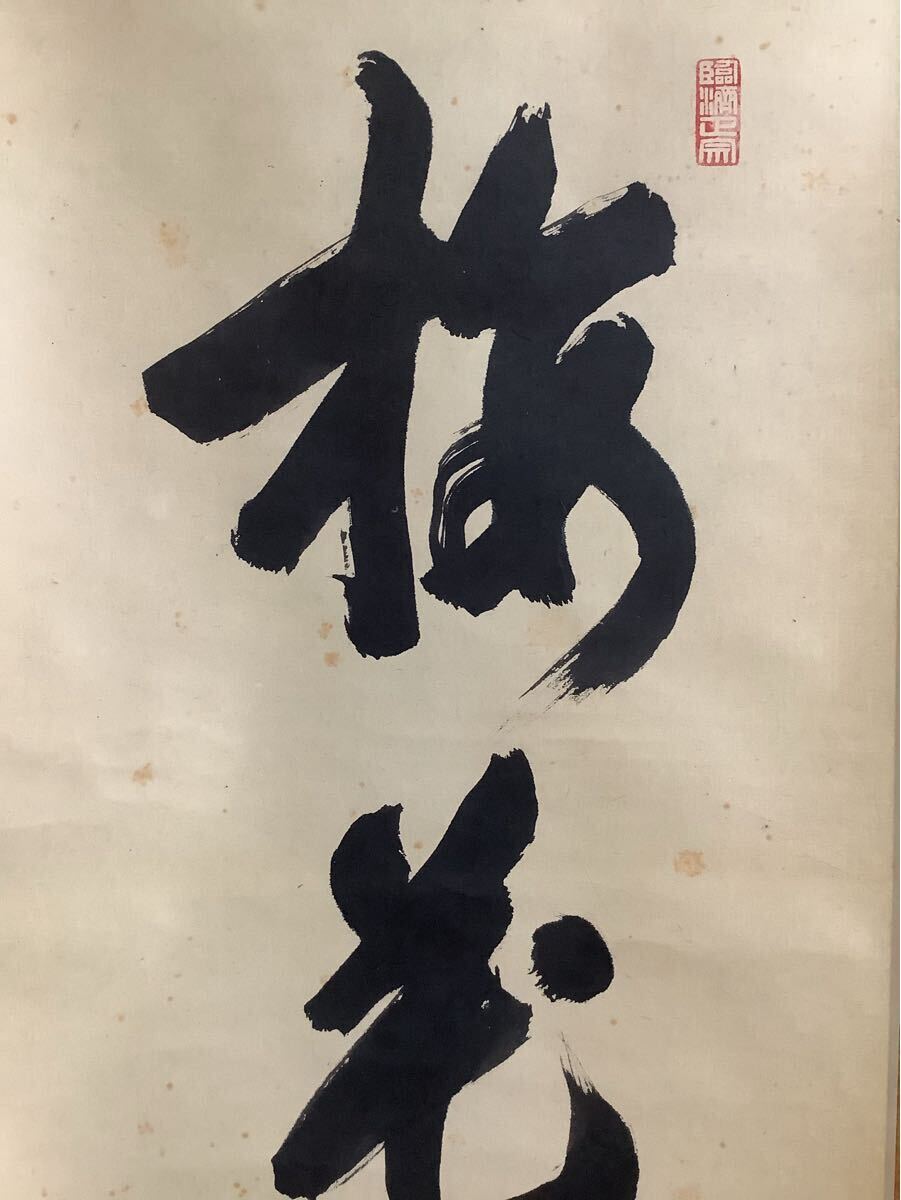 臨濟正宗
梅花